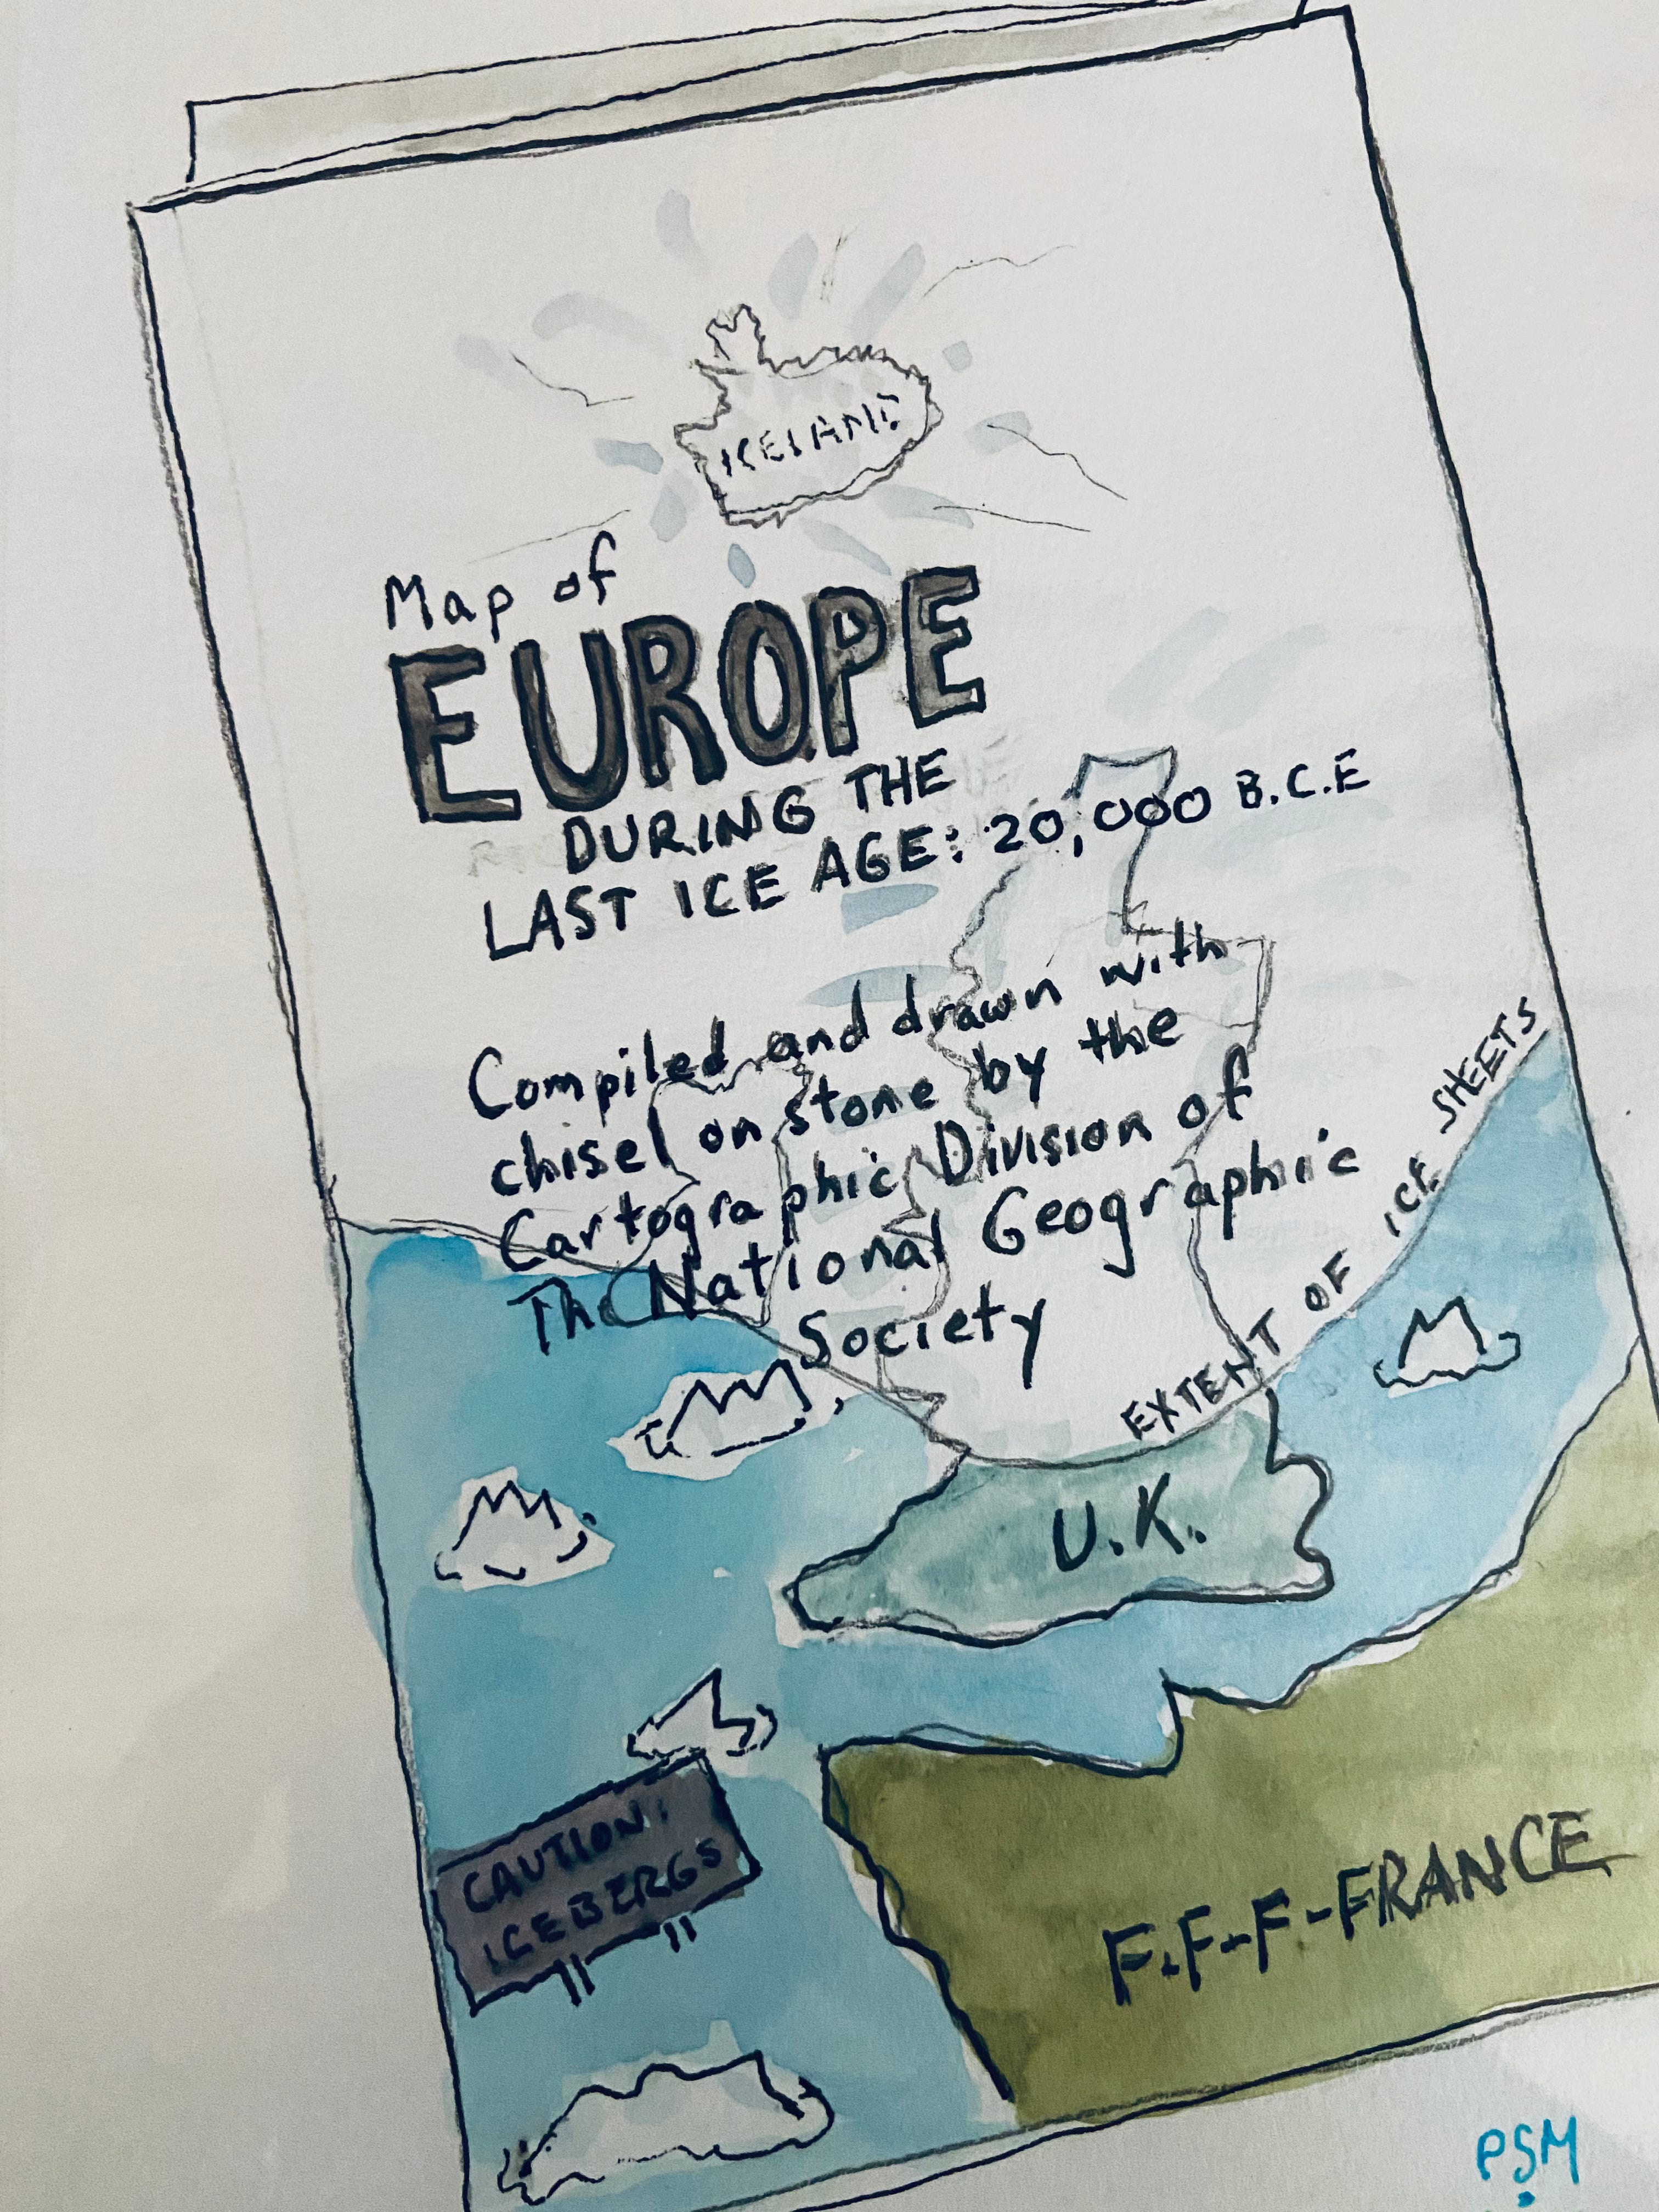 ICELAND
Map of
EUROPE
DURING THE
LAST ICE AGE: 20,000 B.C.E
Compiled and drawn with
chisel on stone by the
Cartographic Division of
The National Geographic
Society
EXTENT OF ICE SHEETS
U.K.
CAUTION!
ICEBERGS
F-F-F-FRANCE
PSM